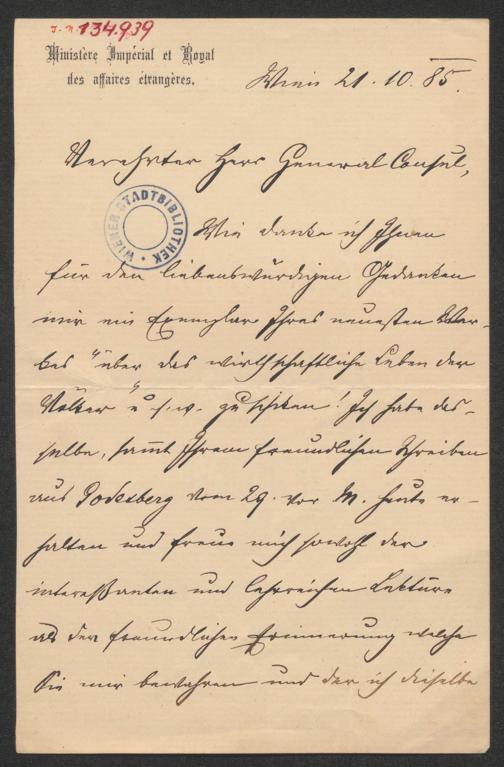 J. N. 134.939
Ministère Impérial et Royal
des affaires étrangères.
Wien 21. 10. 85.
Verehrter Herr General Consul,
WIENER STADTBIBLIOTHEK
Wie danke ich Ihnen
für den liebenswürdigen Gedanken
mir ein Exemplar Ihres neuesten Wer-
kes "über das wirthschaftliche Leben der
Völker" u. s. w. zu schiken! Ich habe das-
selbe, sammt Ihrem freundlichen Schreiben
aus Godesberg vom 29. vor. M. heute er-
halten und freue mich sowohl der
interessanten und lehrreichen Lektüre
als der freundlichen Erinnerung welche
Sie mir bewahren und der ich dieselbe